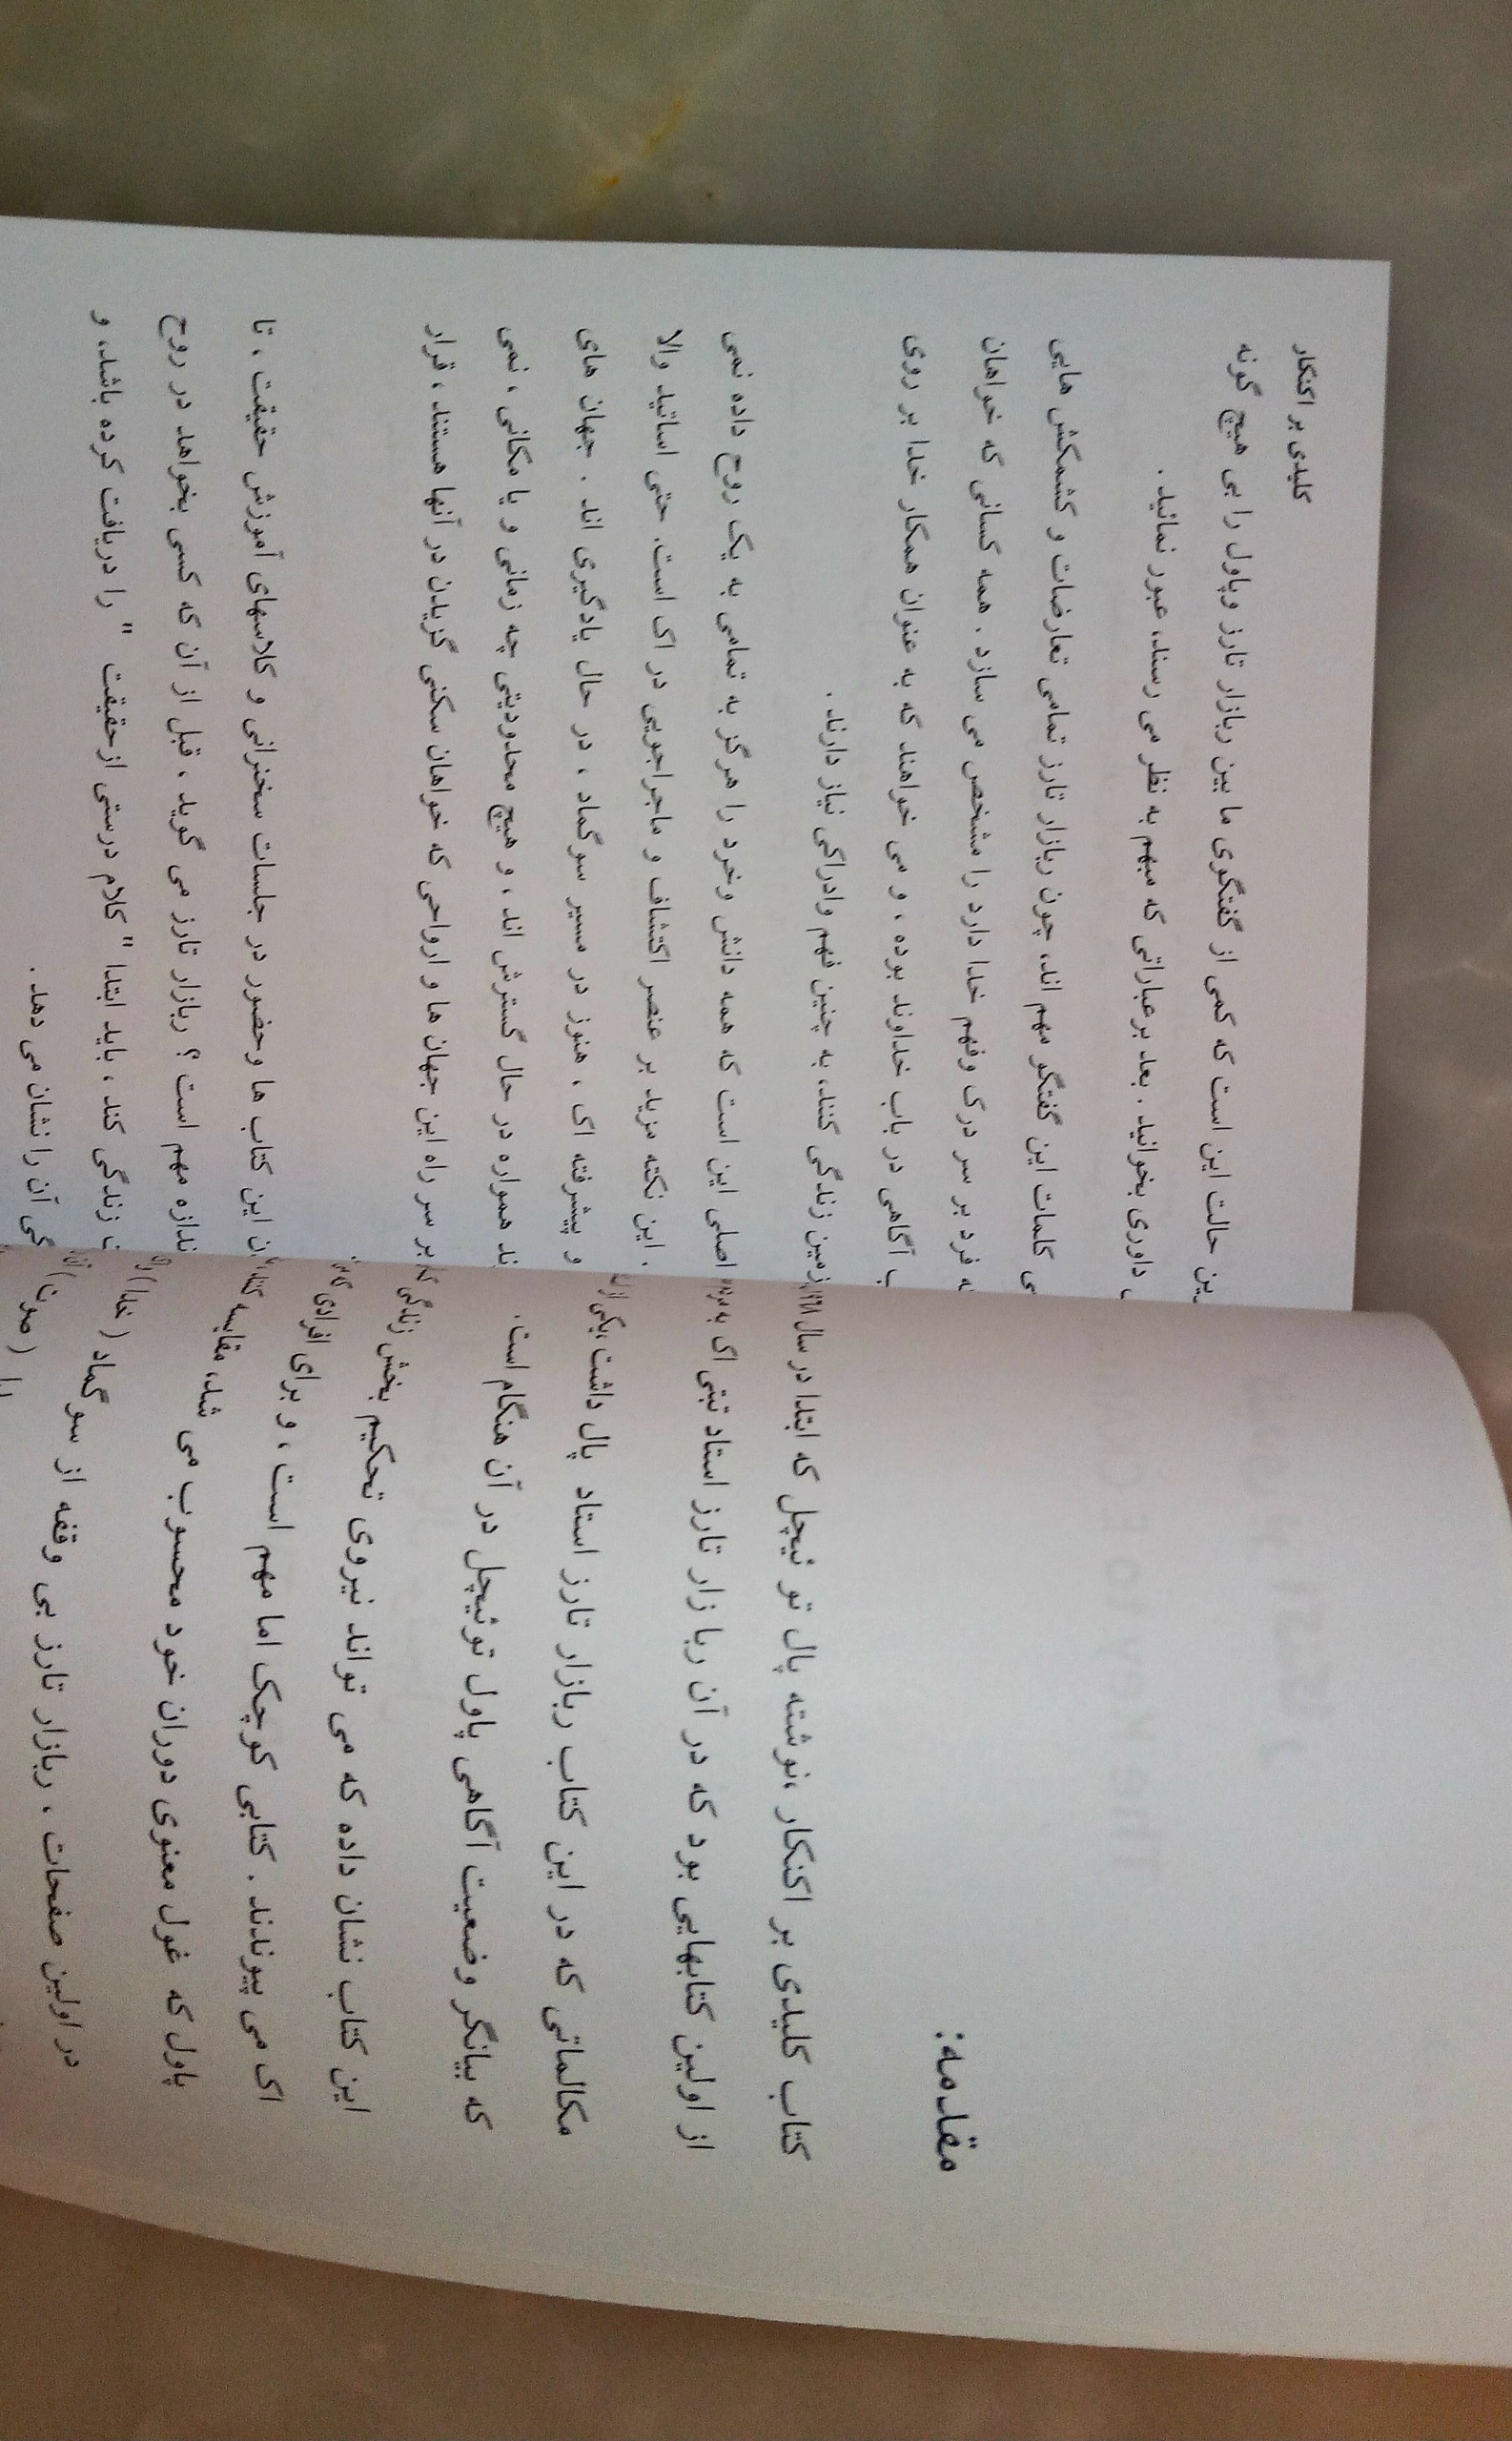 مقدمه:
کتاب کلیدی بر اکنکار ،نوشته پال تو ئیچل که ابتدا در سال
از اولین کتابهایی بود که در آن ربا زار تارز استاد تبتی ای به
مکالماتی که در این کتاب ربازار تارز استاد پال داشت ،یکی از
که بیانگر وضعیت آگاهی پاول توئیچل در آن هنگام است.
این کتاب نشان داده که می تواند نیروی تحکیم بخش زندگی
ای می پیوندند . کتابی کوچک اما مهم است ، و برای افرادی
پاول که غول معنوی دوران خود محسوب می شد، مقایسه
در اولین صفحات ، ربازار تارز بی وقفه از سوگماد ( خدا )
( صوت )
کلیدی بر اکنکار
این حالت این است که کمی از گفتگوی ما بین ربازار تارز وپاول را بی هیچ گونه
داوری بخوانید . بعد بر عباراتی که مبهم به نظر می رسند، عبور نمائید .
کلمات این گفتگو مهم اند، چون ربازار تارز تمامی تعارضات و کشمکش هایی
فرد بر سر درک وفهم خدا دارد را مشخص می سازد . همه کسانی که خواهان
آگاهی در باب خداوند بوده ، و می خواهند که به عنوان همکار خدا بر روی
زمین زندگی کنند، به چنین فهم وادراکی نیاز دارند .
اصلی این است که همه دانش وخرد را هرگز به تمامی به یک روح داده نمی
. این نکته مزید بر عنصر اکتشاف و ماجراجویی در اک است. حتی اساتید والا
و پیشرفته ای ، هنوز در مسیر سوگماد ، در حال یادگیری اند . جهان های
همواره در حال گسترش اند ، و هیچ محدودیتی چه زمانی و یا مکانی ، نمی
بر سر راه این جهان ها و ارواحی که خواهان سکنی گزیدن در آنها هستند ، قرار
این کتاب ها وحضور در جلسات سخنرانی و کلاسهای آموزش حقیقت ، تا
اندازه مهم است ؟ ربازار تارز می گوید ، قبل از آن که کسی بخواهد در روح
زندگی کند ، باید ابتدا " کلام درستی ازحقیقت " را دریافت کرده باشد، و
آن را نشان می دهد .